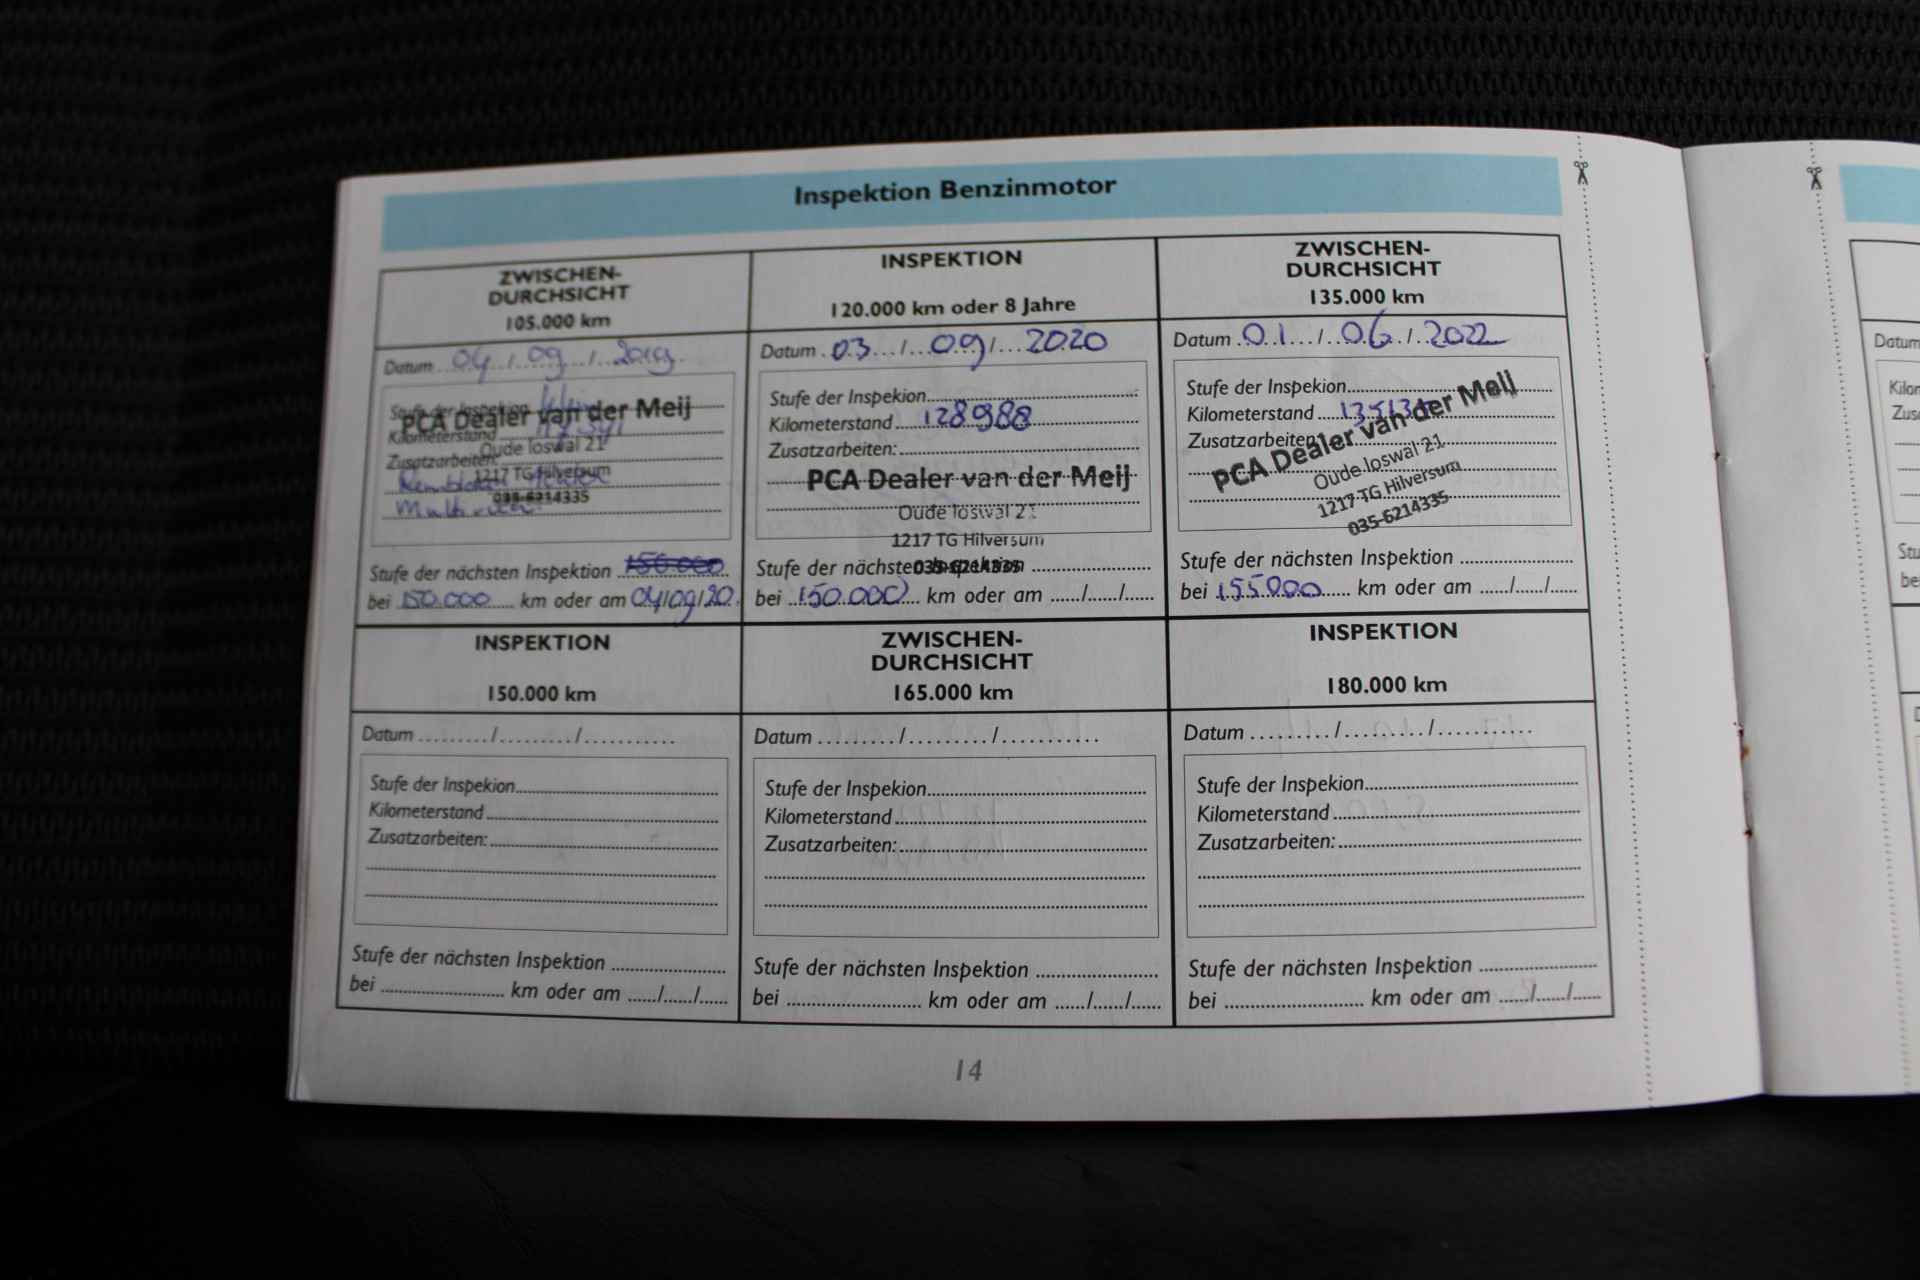 Inspektion Benzinmotor
ZWISCHEN-
DURCHSICHT
105.000 km
Datum 04/09/2019
Stufe der Inspekion
Kilometerstand
Zusatzarbeiten:
PCA Dealer van der Meij
Oude loswal 21
1217 TG Hilversum
035-6214335
Stufe der nächsten Inspektion 150.000
bei 150.000 km oder am 04/09/20
INSPEKTION
120.000 km oder 8 Jahre
Datum 03/09/2020
Stufe der Inspekion
Kilometerstand 128988
Zusatzarbeiten:
PCA Dealer van der Meij
Oude loswal 21
1217 TG Hilversum
035-6214335
Stufe der nächsten Inspektion
bei 150.000 km oder am ....../....../......
ZWISCHEN-
DURCHSICHT
135.000 km
Datum 01/06/2022
Stufe der Inspekion
Kilometerstand
Zusatzarbeiten
PCA Dealer van der Meij
Oude loswal 21
1217 TG Hilversum
035-6214335
Stufe der nächsten Inspektion
bei 155000 km oder am ....../....../......
INSPEKTION
150.000 km
Datum ........./........./...........
Stufe der Inspekion
Kilometerstand
Zusatzarbeiten:
Stufe der nächsten Inspektion
bei km oder am ....../....../......
ZWISCHEN-
DURCHSICHT
165.000 km
Datum ........./........./...........
Stufe der Inspekion
Kilometerstand
Zusatzarbeiten:
Stufe der nächsten Inspektion
bei km oder am ....../....../......
INSPEKTION
180.000 km
Datum ........./........./...........
Stufe der Inspekion
Kilometerstand
Zusatzarbeiten:
Stufe der nächsten Inspektion
bei km oder am ....../....../......
14
Datum